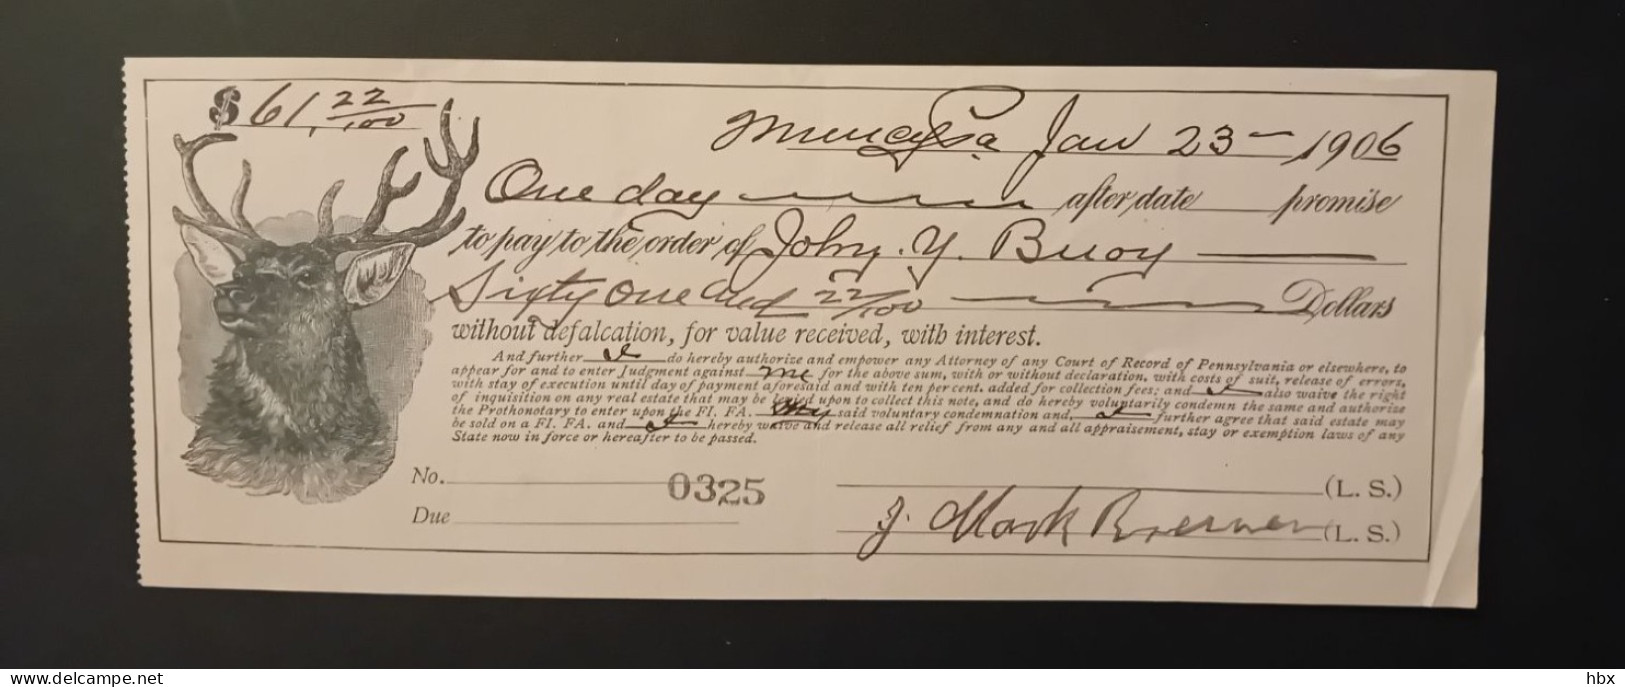 $ 61, 22/100
Muncy Pa Jan 23 — 1906
One day after date promise
to pay to the order of John. Y. Buoy
Sixty One and 22/100 Dollars
without defalcation, for value received, with interest.
And further I do hereby authorize and empower any Attorney of any Court of Record of Pennsylvania or elsewhere, to
appear for and to enter Judgment against me for the above sum, with or without declaration, with costs of suit, release of errors,
with stay of execution until day of payment aforesaid and with ten per cent. added for collection fees; and I also waive the right
of inquisition on any real estate that may be levied upon to collect this note, and do hereby voluntarily condemn the same and authorize
the Prothonotary to enter upon the FI. FA. my said voluntary condemnation and, I further agree that said estate may
be sold on a FI. FA. and I hereby waive and release all relief from any and all appraisement, stay or exemption laws of any
State now in force or hereafter to be passed.
No. 0325 (L. S.)
Due J. Mark (L. S.)
delcampe.net
hbx